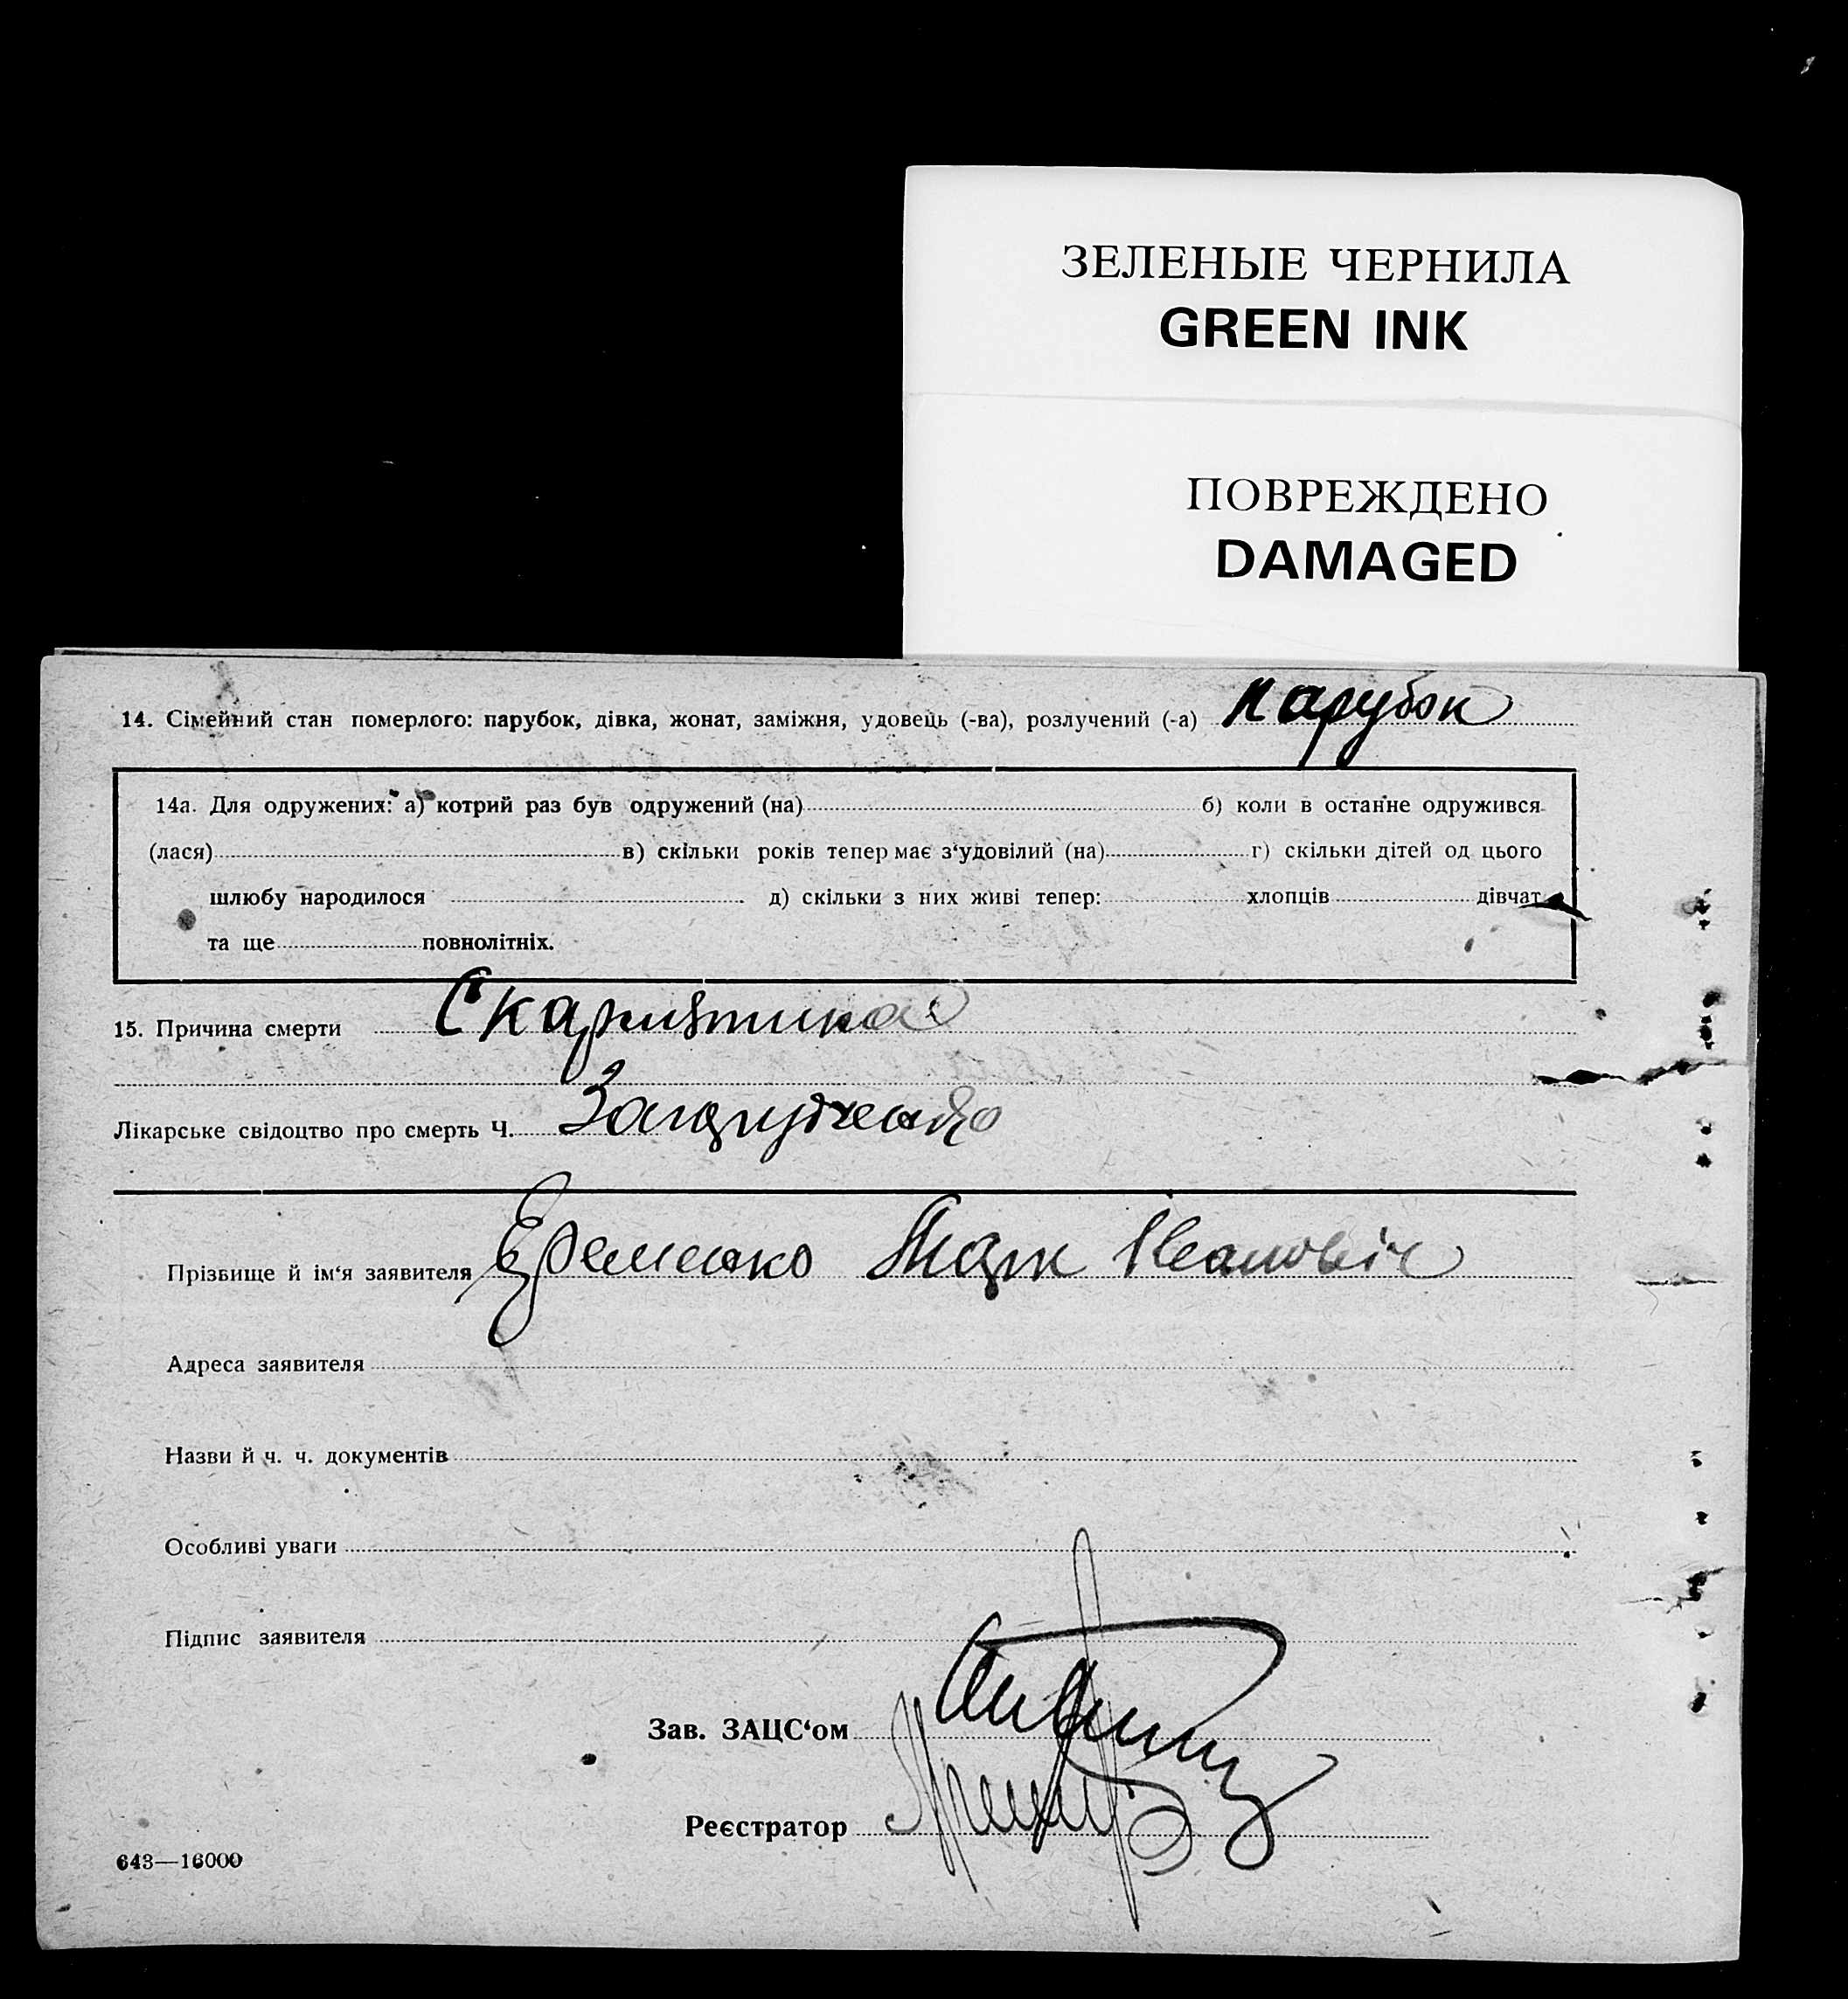 ЗЕЛЕНЫЕ ЧЕРНИЛА
GREEN INK
ПОВРЕЖДЕНО
DAMAGED
14. Сімейний стан померлого: парубок, дівка, жонат, заміжня, удовець (-ва), розлучений (-а) парубок
14а. Для одружених: а) котрий раз був одружений (на) б) коли в останнє одружився
(лася) в) скільки років тепер має з‘удовілий (на) г) скільки дітей од цього
шлюбу народилося д) скільки з них живі тепер: хлопців дівчат
та ще повнолітніх.
15. Причина смерти
Лікарське свідоцтво про смерть Ч.
Прізвище й ім‘я заявителя Еременко Марк Іванович
Адреса заявителя
Назви й ч. ч. документів
Особливі уваги
Підпис заявителя
Зав. ЗАЦС‘ом
Реєстратор
643—16000